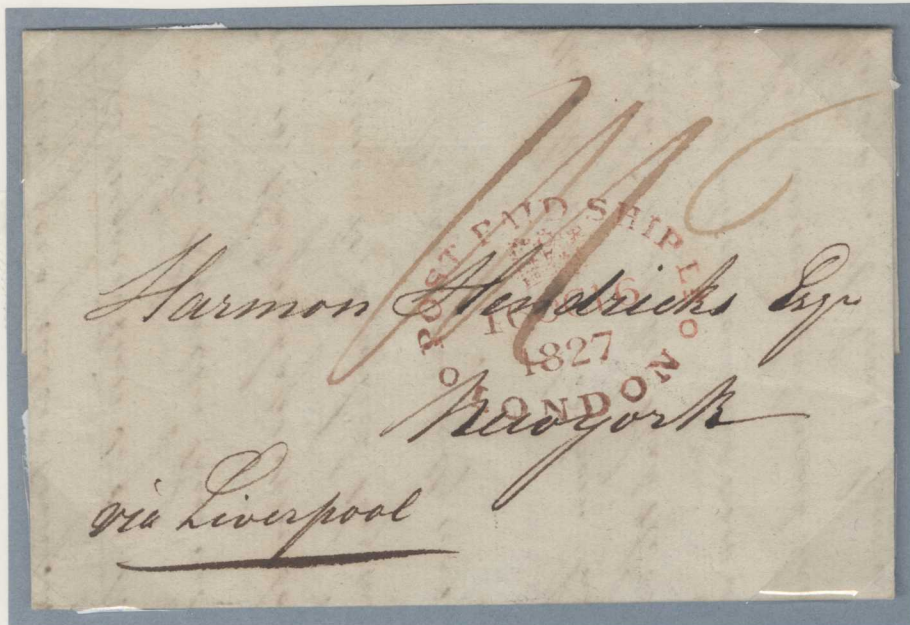 POST PAID SHIP LR
1827
LONDON
Harmon Hendricks Esqr
Newyork
via Liverpool